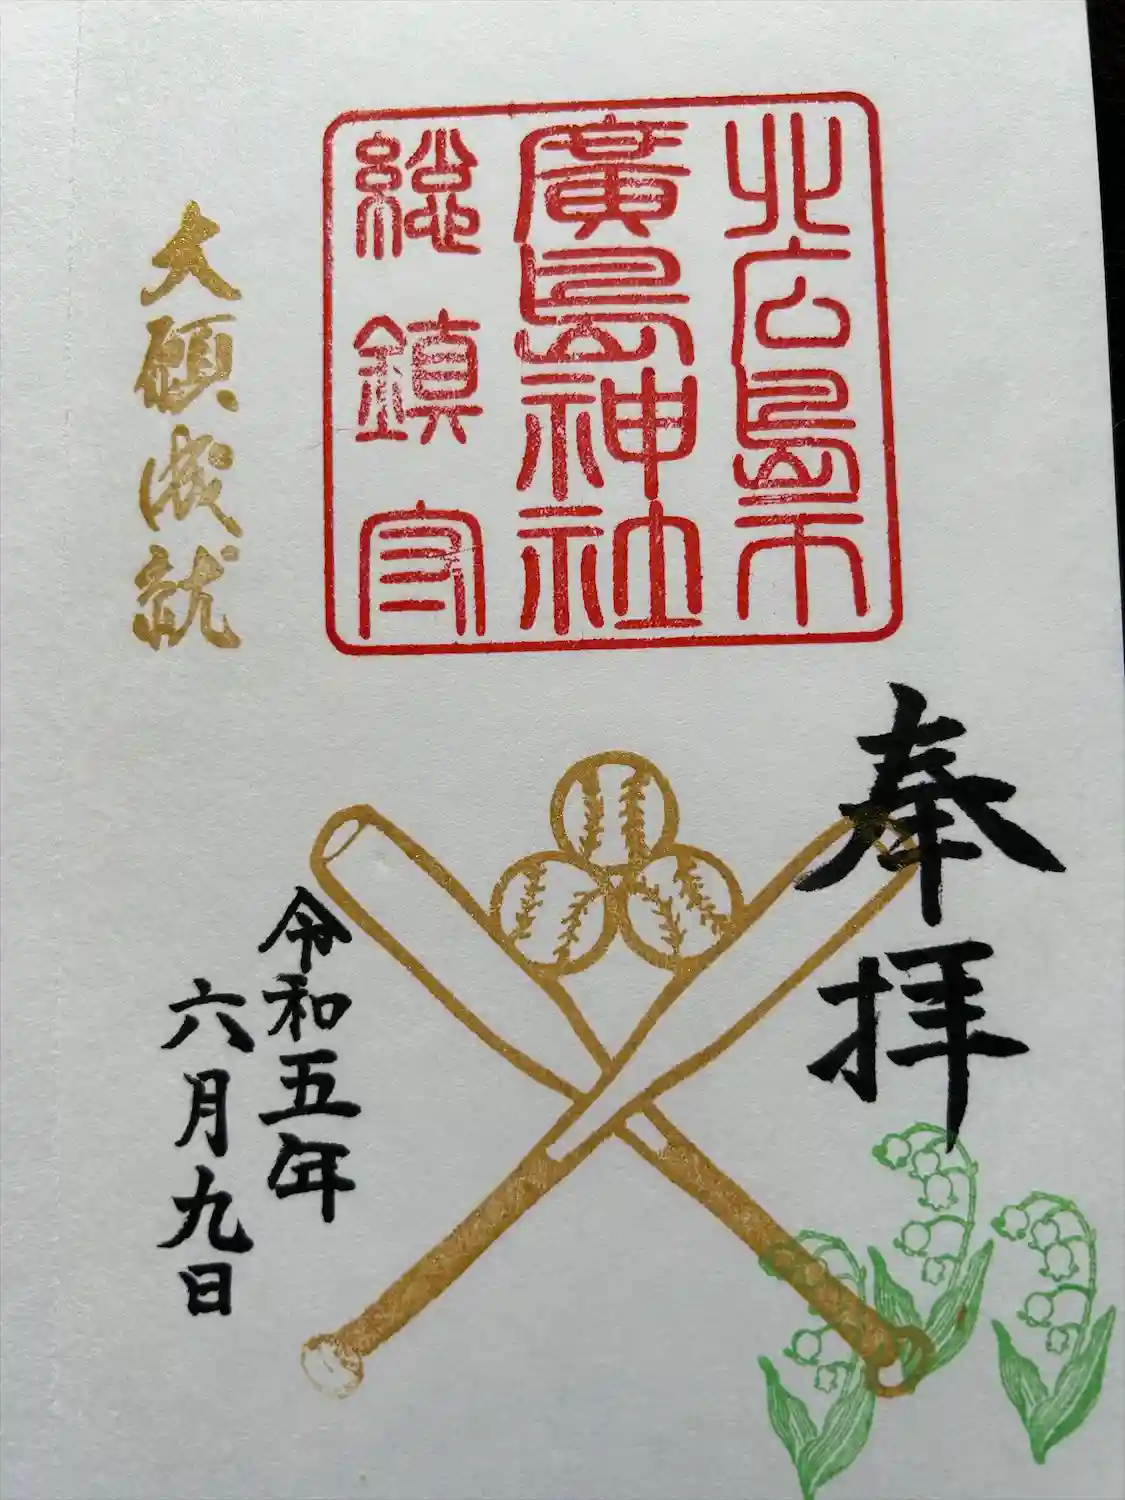 北広島市
廣島神社
総鎮守
奉拝
令和五年
六月九日
大願成就